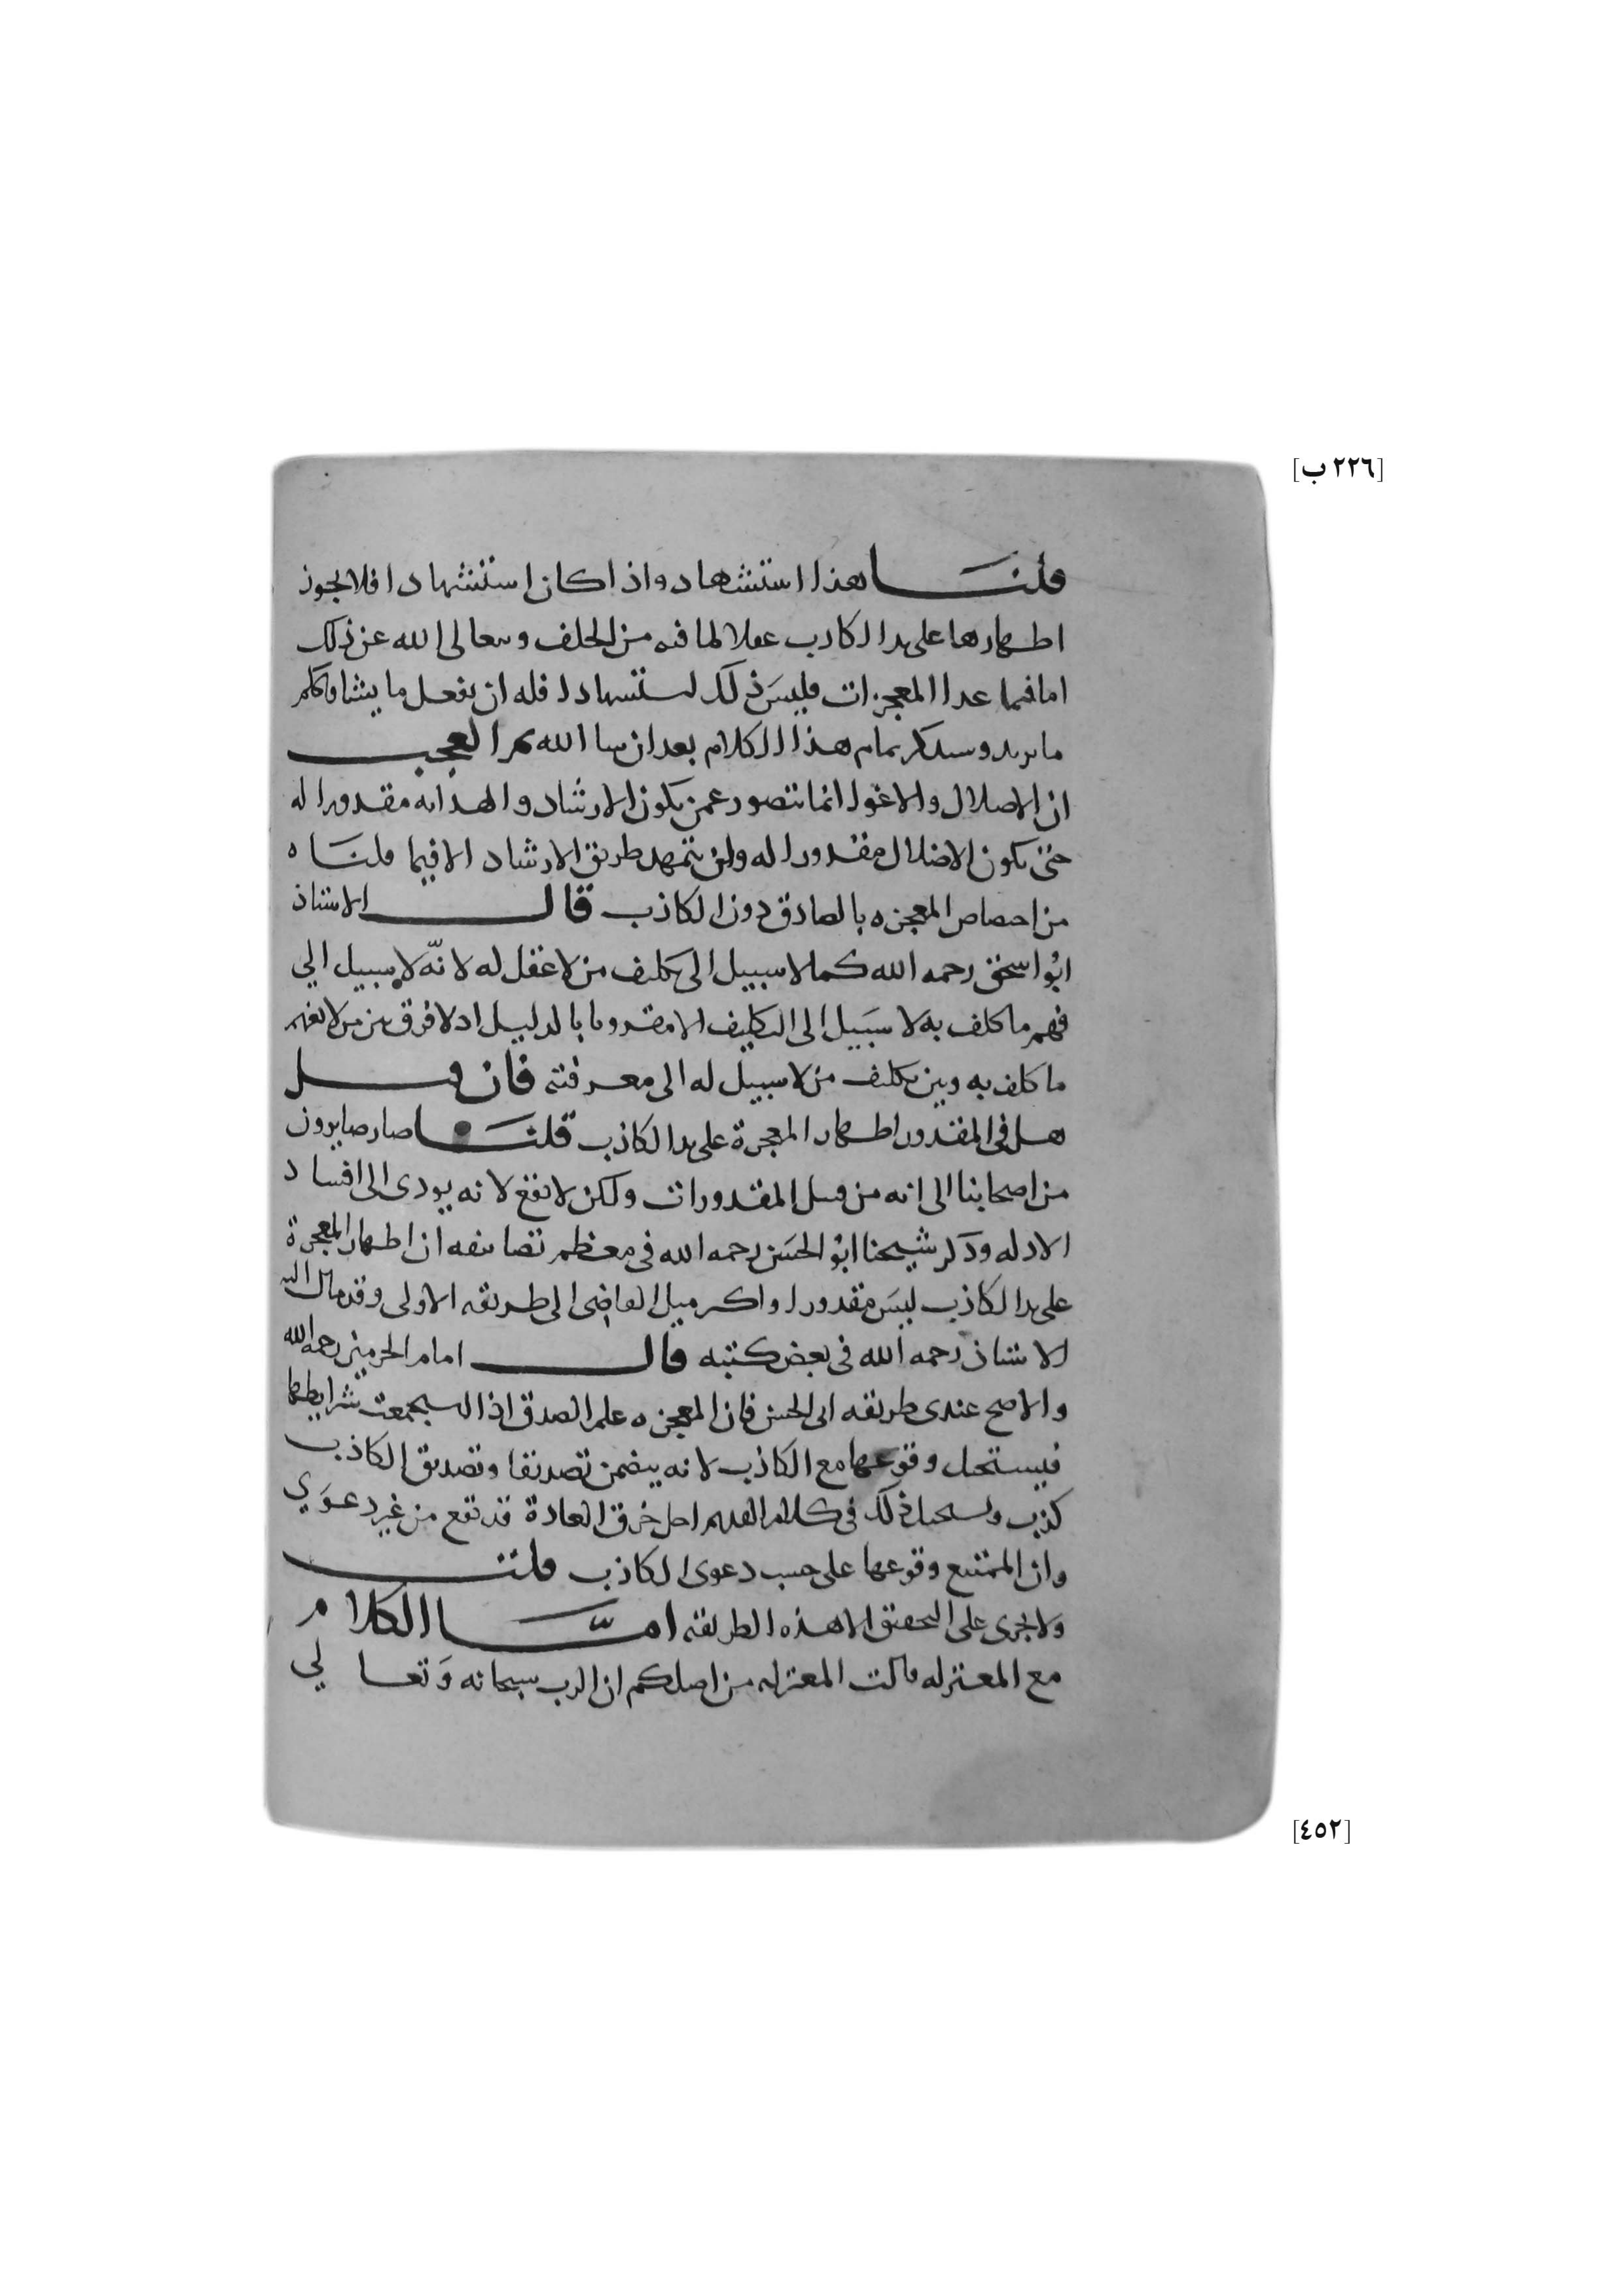 [٢٢٦ ب]
قلنا هذا استشهاد واذا كان استشهادا فلا يجوز
اظهارها على يد الكاذب عقلا لما فيه من الخلف وتعالى الله عن ذلك
اما فيما عدا المعجزات فليس ذلك استشهادا فله ان يفعل ما يشا
ما يريد وسنذكر تمام هذا الكلام بعد ان شا الله ثم العجب
ان الاضلال والاغوا انما يتصور عمن يكون الارشاد والهدايه مقدورا له
حتى يكون الاضلال مقدورا له ولن يتمهد طريق الارشاد الا فيما قلناه
من اختصاص المعجزه بالصادق دون الكاذب قال الاستاذ
ابو اسحق رحمه الله كما لا سبيل الى تكليف من لا عقل له لانه لا سبيل الي
فهم ما كلف به لا سبيل الى التكليف الا مقرونا بالدليل اذ لا فرق بين من لا يفهم
ما كلف به وبين تكليف من لا سبيل له الى معرفته فان قيل
هل في المقدور اظهار المعجزة على يد الكاذب قلنا صار صايرون
من اصحابنا الى انه من قبيل المقدورات ولكن لا تقع لانه يودى الى افساد
الادله وذكر شيخنا ابو الحسن رحمه الله في معظم تصانيفه ان اظهار المعجزة
على يد الكاذب ليس مقدورا واكثر ميل القاضى الى طريقه الاولى وقد مال اليه
الاستاذ رحمه الله في بعض كتبه قال امام الحرمين رحمه الله
والاصح عندى طريقه ابى الحسن فان المعجزه علم الصدق اذا استجمعت شرايطها
فيستحيل وقوعها مع الكاذب لانه يتضمن تصديقا وتصديق الكاذب
كذب ويستحيل ذلك في كلام القديم اجل خرق العادة قد تقع من غير دعوي
وان الممتنع وقوعها على حسب دعوى الكاذب قلت
ولا يجرى على التحقيق الا هذه الطريقه امّا الكلام
مع المعتزله قالت المعتزله من اصلكم ان الرب سبحانه وتعالي
[٤٥٢]